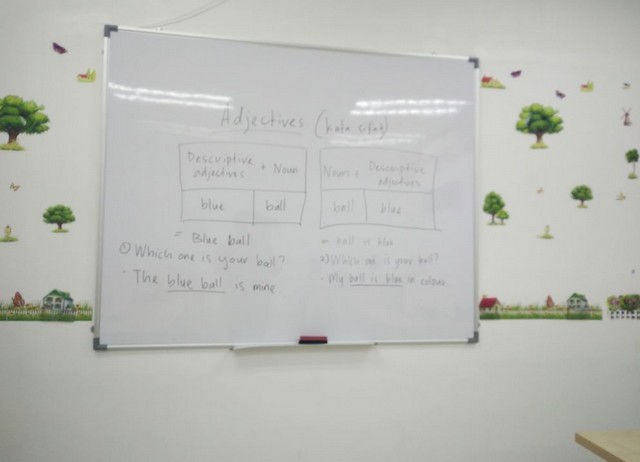 Adjectives (kata sifat)
Descriptive adjectives + Noun
blue ball
= Blue ball
① Which one is your ball?
- The blue ball is mine
Noun + Descriptive adjectives
ball blue
= ball is blue
2) Which one is your ball?
- My ball is blue in colour